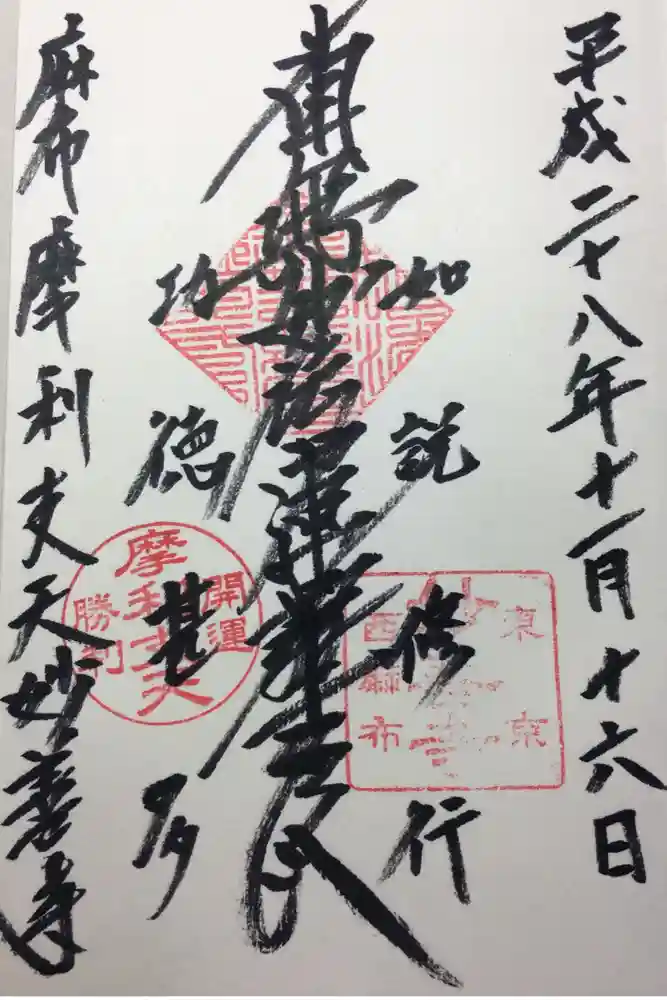 平成二十八年十一月十六日
如説修行
南無妙法蓮華経
功徳甚多
麻布摩利支天妙善寺
開運
摩利支天
勝利
東京
西麻布